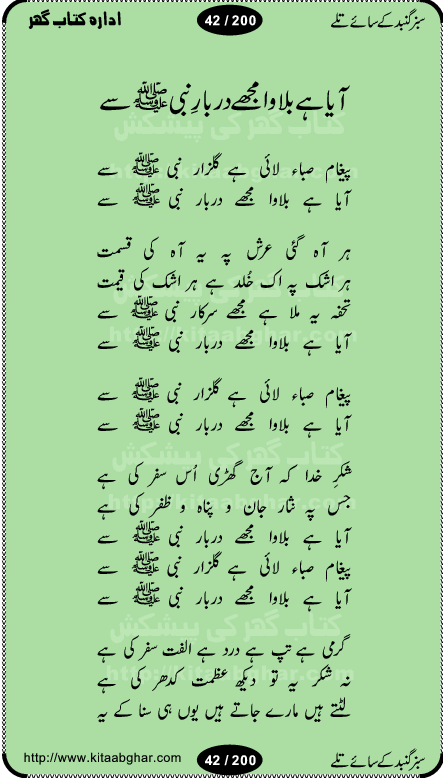 اداره کتاب گھر
42 / 200
سبز گنبد کے سائے تلے
آیا ہے بلاوا مجھے دربارِ نبی ﷺ سے
کتاب گھر کی پیشکش
پیغام صباء لائی ہے گلزار نبی ﷺ سے
http://kitaabghar.com
آیا ہے بلاوا مجھے دربار نبی ﷺ سے
ہر آہ گئی عرش پہ یہ آہ کی قسمت
ہر اشک پہ اک خُلد ہے ہر اشک کی قیمت
کتاب گھر کی پیشکش
تحفہ یہ ملا ہے مجھے سرکار نبی ﷺ سے
http://kitaabghar.com
آیا ہے بلاوا مجھے دربار نبی ﷺ سے
پیغام صباء لائی ہے گلزار نبی ﷺ سے
آیا ہے بلاوا مجھے دربار نبی ﷺ سے
کتاب گھر کی پیشکش
شکرِ خدا کہ آج گھڑی اُس سفر کی ہے
http://kitaabghar.com
جس پہ نثار جان و پناہ و ظفر کی ہے
آیا ہے بلاوا مجھے دربار نبی ﷺ سے
پیغام صباء لائی ہے گلزار نبی ﷺ سے
آیا ہے بلاوا مجھے دربار نبی ﷺ سے
کتاب گھر کی پیشکش
گرمی ہے تپ ہے درد ہے الفت سفر کی ہے
http://kitaabghar.com
نہ شکر یہ تو دیکھ عظمت کدھر کی ہے
لٹتے ہیں مارے جاتے ہیں یوں ہی سنا کے یہ
http://www.kitaabghar.com
42 / 200
سبز گنبد کے سائے تلے